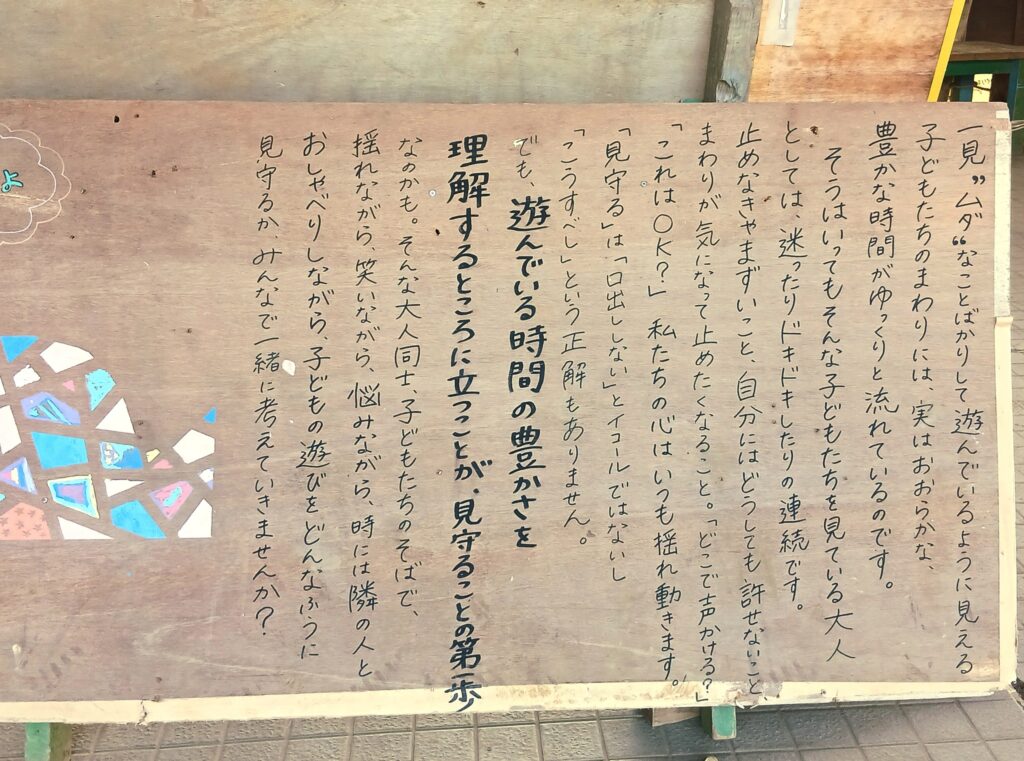 一見”ムダ“なことばかりして遊んでいるように見える
子どもたちのまわりには、実はおおらかな、
豊かな時間がゆっくりと流れているのです。
そうはいってもそんな子どもたちを見ている大人
としては、迷ったりドキドキしたりの連続です。
止めなきゃまずいこと、自分にはどうしても許せないこと、
まわりが気になって止めたくなること。「どこで声かける?」
「これはOK?」私たちの心はいつも揺れ動きます。
「見守る」は「口出ししない」とイコールではないし
「こうすべし」という正解もありません。
でも、遊んでいる時間の豊かさを
理解するところに立つことが、見守ることの第一歩
なのかも。そんな大人同士、子どもたちのそばで、
揺れながら、笑いながら、悩みながら、時には隣の人と
おしゃべりしながら、子どもの遊びをどんなふうに
見守るか、みんなで一緒に考えていきませんか?
よ